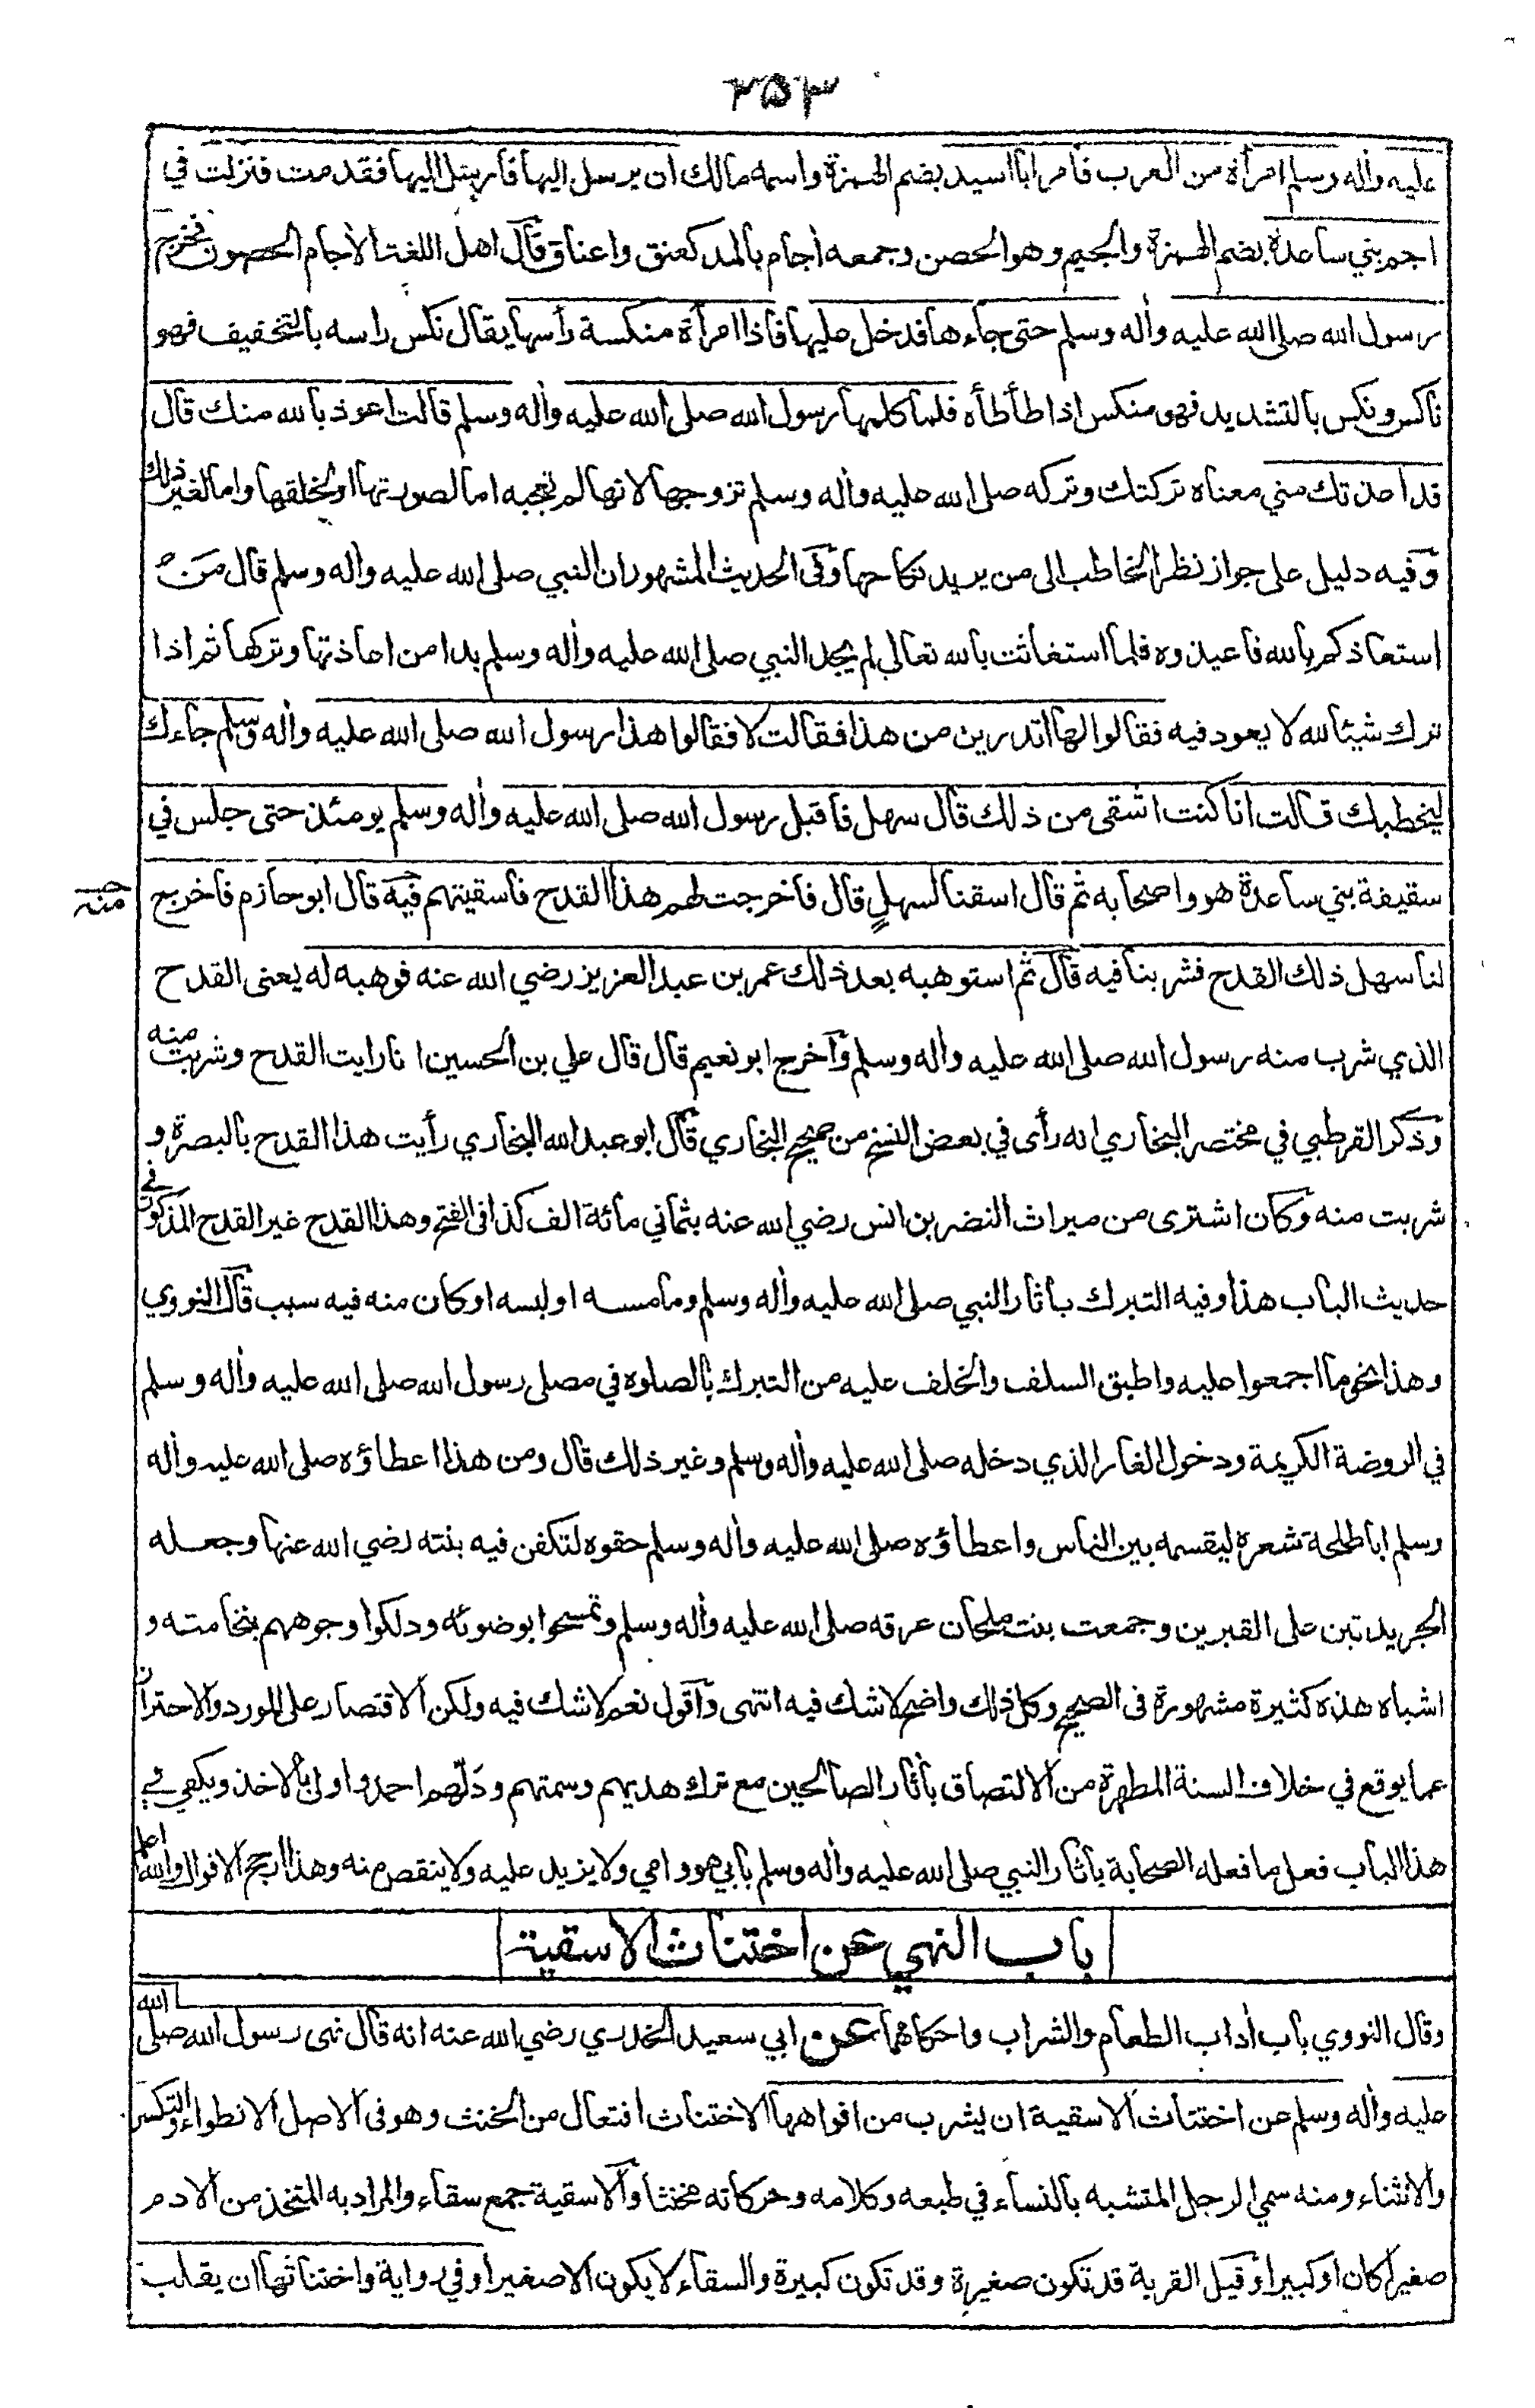 ٢٥٣
عليه وأله وسلم امرأة من العرب فأمر ابا اسيد بضم الهمزة واسمه مالك ان يرسل اليها فارسل اليها فقدمت فنزلت في
اجم بني ساعدة بضم الهمزة والجيم وهو الحصن وجمعه أجام بالمد كعنق واعناق قال اهل اللغت الأجام الحصون فخرج
رسول الله صلى الله عليه وأله وسلم حتى جاءها فدخل عليها فاذا امرأة منكسة رأسها يقال نكس راسه بالتخفيف فهو
ناكس ونكس بالتشديد فهو منكس اذا طأطأه فلما كلمها رسول الله صلى الله عليه وأله وسلم قالت اعوذ بالله منك قال
قد اعذتك مني معناه تركتك وتركه صلى الله عليه وأله وسلم تزوجها لانها لم تعجبه اما لصورتها او لخلقها واما لغير ذلك
وفيه دليل على جواز نظر الخاطب الى من يريد نكاحها وفي الحديث المشهور ان النبي صلى الله عليه واله وسلم قال من
استعاذكم بالله فاعيذوه فلما استغاثت بالله تعالى لم يجد النبي صلى الله عليه وأله وسلم بدا من اعاذتها وتركها ثم اذا
ترك شيئا لله لا يعود فيه فقالوا لها اتدرين من هذا فقالت لا فقالوا هذا رسول الله صلى الله عليه وأله وسلم جاءك
ليخطبك قالت انا كنت اشقى من ذلك قال سهل فاقبل رسول الله صلى الله عليه وأله وسلم يومئذ حتى جلس في
سقيفة بني ساعدة هو واصحابه ثم قال اسقنا لسهل قال فاخرجت لهم هذا القدح فاسقيتهم فيه قال ابو حازم فاخرج
منه
لنا سهل ذلك القدح فشربنا فيه قال ثم استوهبه بعد ذلك عمر بن عبد العزيز رضي الله عنه فوهبه له يعنى القدح
الذي شرب منه رسول الله صلى الله عليه وأله وسلم وأخرج ابو نعيم قال قال علي بن الحسين انا رايت القدح وشربت منه
وذكر القرطبي في مختصر البخاري انه رأى في بعض النسخ من صحيح البخاري قال ابو عبد الله البخاري رأيت هذا القدح بالبصرة و
شربت منه وكان اشترى من ميراث النضر بن انس رضي الله عنه بثماني مائة الف كذا فى الفتح وهذا القدح غير القدح المذكور في
حديث الباب هذا وفيه التبرك بأثار النبي صلى الله عليه وأله وسلم وما مسه او لبسه او كان منه فيه سبب قال النووي
وهذا نحو ما اجمعوا عليه واطبق السلف والخلف عليه من التبرك بالصلوة في مصلى رسول الله صلى الله عليه وأله وسلم
في الروضة الكريمة ودخول الغار الذي دخله صلى الله عليه وأله وسلم وغير ذلك قال ومن هذا اعطاؤه صلى الله عليه وأله
وسلم ابا طلحة شعره ليقسمه بين الناس واعطاؤه صلى الله عليه وأله وسلم حقوه لتكفن فيه بنته رضي الله عنها وجعله
الجريدتين على القبرين وجمعت بنت ملحان عرقه صلى الله عليه وأله وسلم وتمسحوا بوضوئه ودلكوا وجوههم بنخامته و
اشباه هذه كثيرة مشهورة فى الصحيح وكل ذلك واضح لا شك فيه انتهى وأقول نعم لا شك فيه ولكن الاقتصار على المورد والاحتراز
عما يوقع في خلاف السنة المطهرة من الالتصاق بأثار الصالحين مع ترك هديهم وسمتهم ودلهم احمد واولى بالاخذ ويكفي في
هذا الباب فعل ما فعله الصحابة باثار النبي صلى الله عليه وأله وسلم بأبي هو وامي ولا يزيد عليه ولا ينقص منه وهذا ارجح الاقوال والله اعلم
باب النهي عن اختناث الاسقية
وقال النووي باب أداب الطعام والشراب واحكامهما عن ابي سعيد الخدري رضي الله عنه انه قال نهى رسول الله صلى الله
عليه وأله وسلم عن اختناث الاسقية ان يشرب من افواهها الاختناث افتعال من الخنث وهو فى الاصل الانطواء والتكسر
والانثناء ومنه سمي الرجل المتشبه بالنساء في طبعه وكلامه وحركاته مخنثا والاسقية جمع سقاء والمراد به المتخذ من الادم
صغيرا كان او كبيرا وقيل القربة قد تكون صغيرة وقد تكون كبيرة والسقاء لا يكون الا صغيرا وفي رواية واختناثها ان يقلب